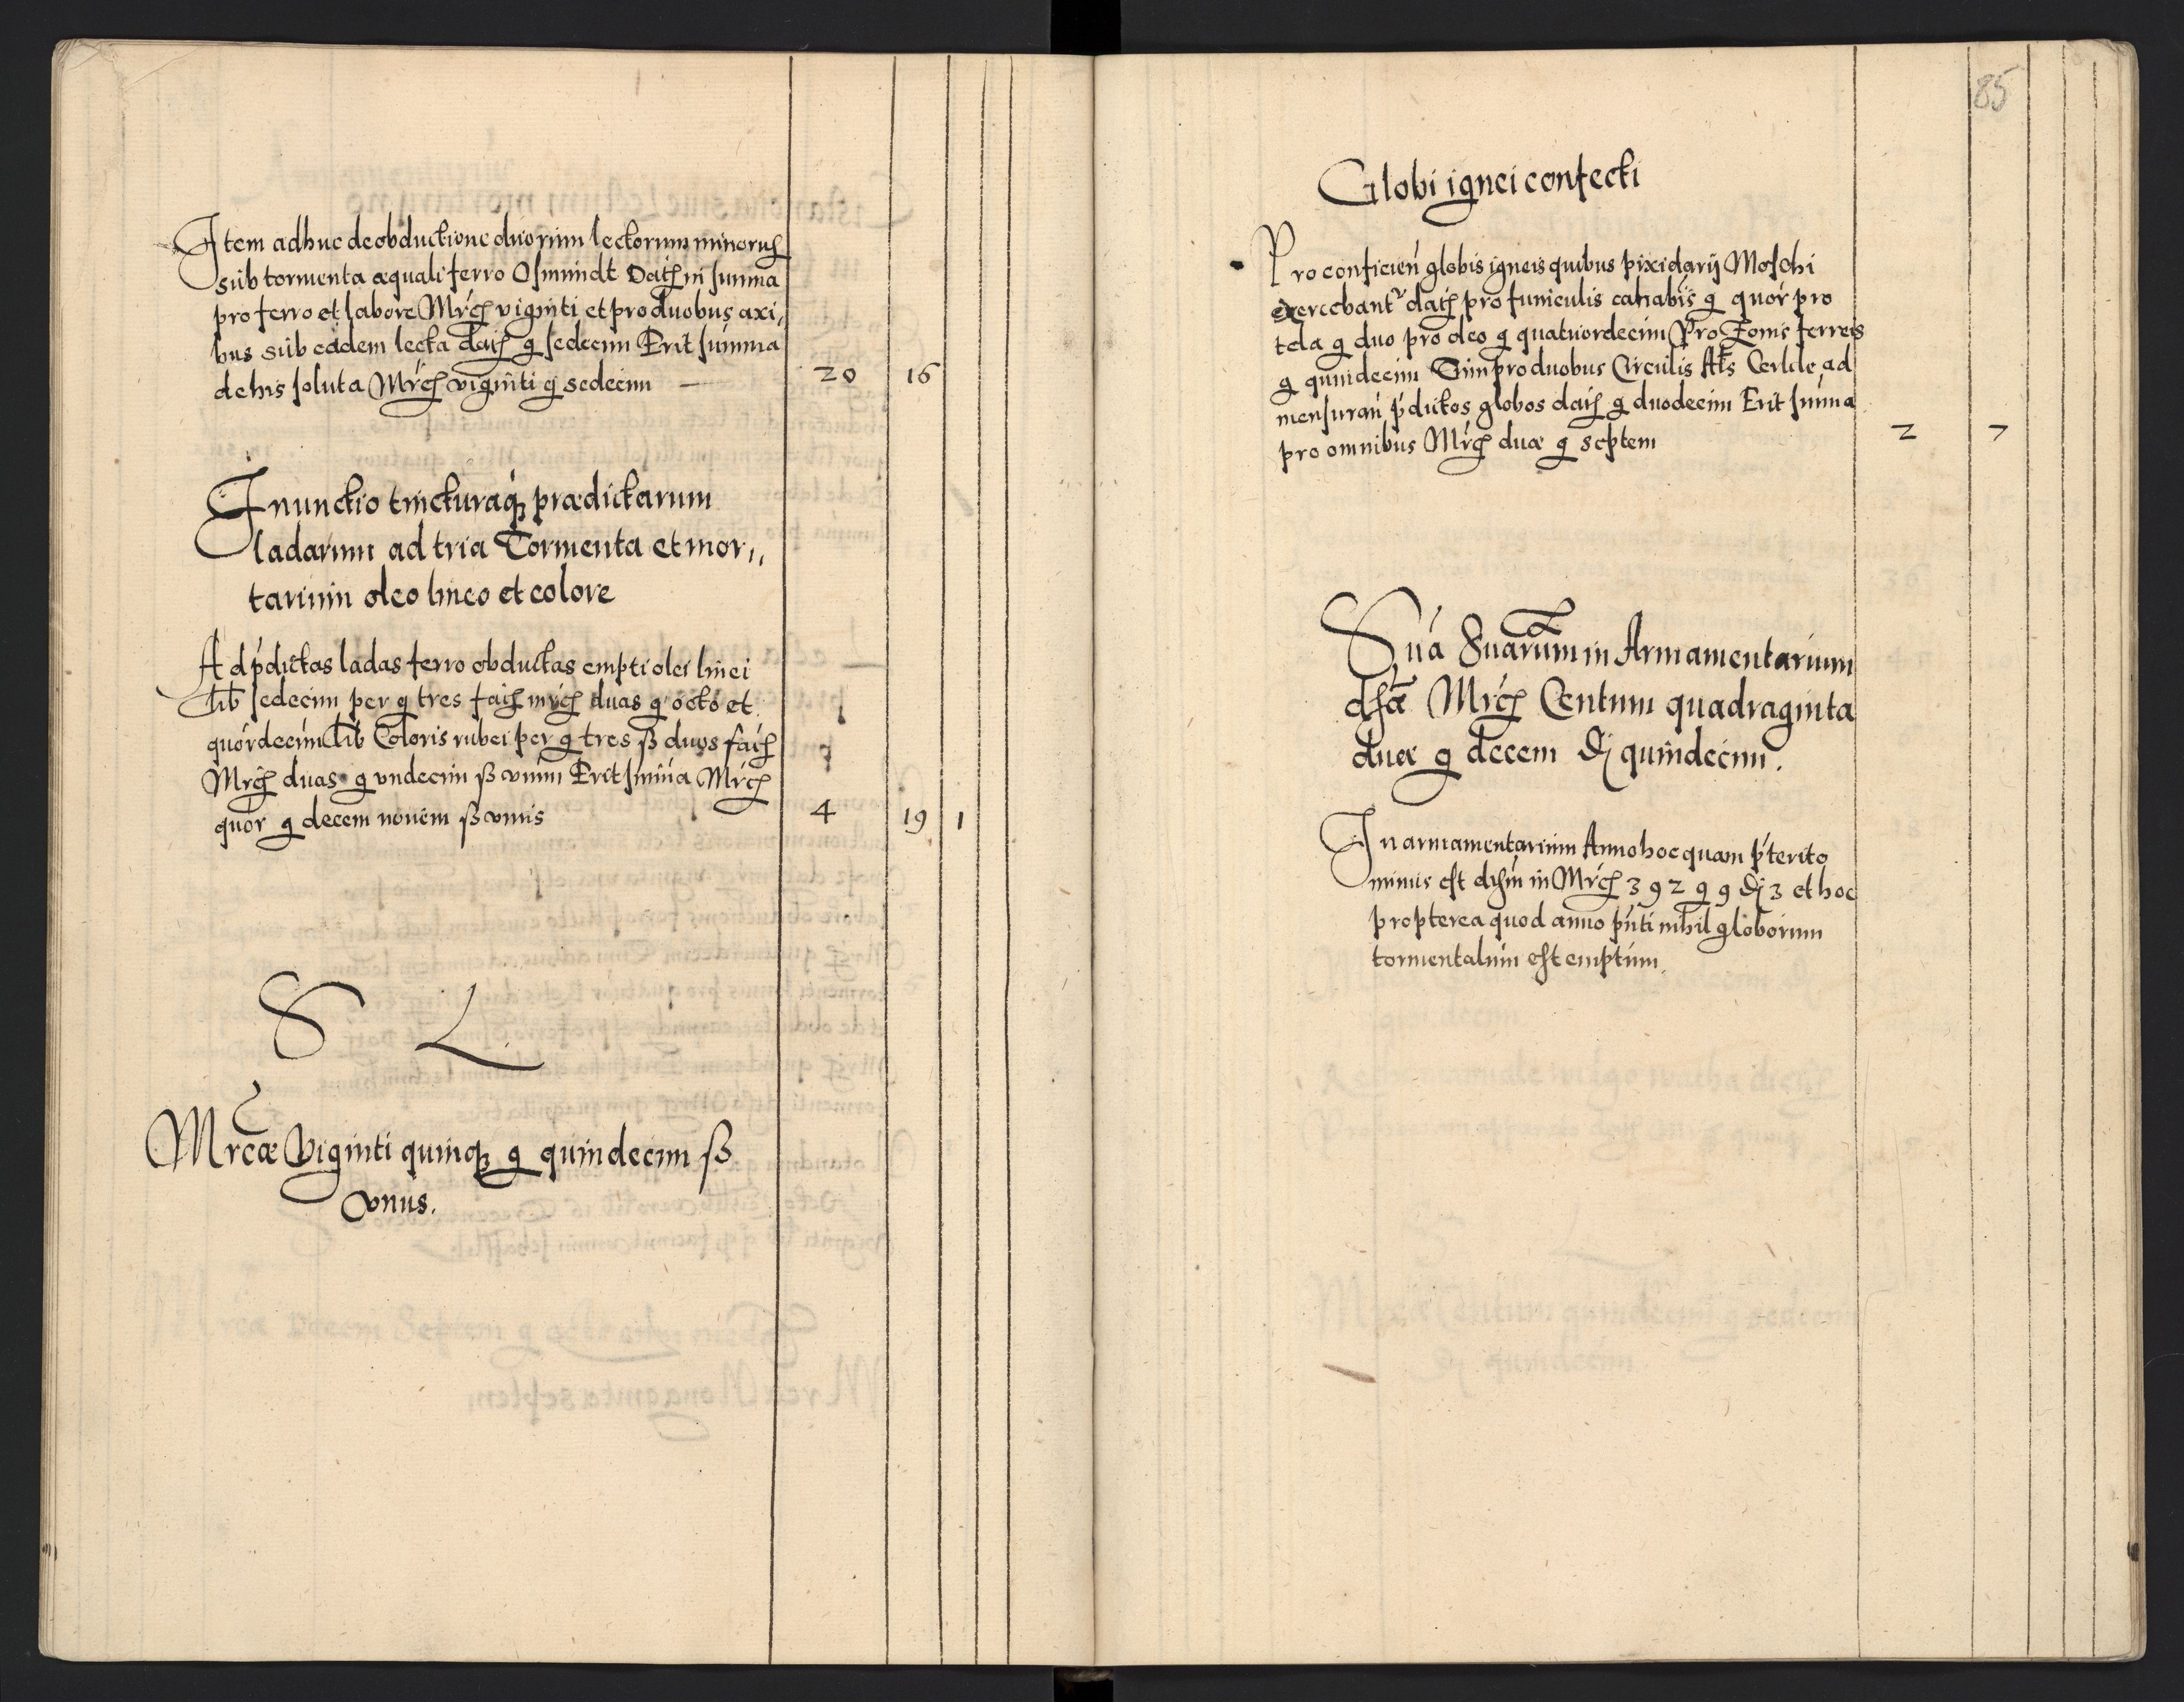 Item adhuc de obductione duorum lectorum minorum
sub tormenta æquali ferro Osmundt Datum in summa
pro ferro et labore Mrcæ viginti et pro duobus axi,
bus sub eadem lecta datum g sedecim Erit summa
de his soluta Mrcæ viginti g sedecim — 20 16
Inunctio tincturaq prædictarum
ladarum ad tria Tormenta et mor,,
tarium oleo lineo et colore
Ad pdictas ladas ferro obductas empti olei linei
lib sedecim per g tres faciunt mrcæ duas g octo et
quordecim lib Coloris rubei per g tres ß duos faciunt
Mrcæ duas g vndecim ß vnum Erit summa Mrcæ
quor g decem nouem ß vnus 4 19 1
S L
Mrcæ Viginti quinq g quindecim ß
vnus.
85
Globi ignei confecti
Pro conficien globis igneis quibus pixidarij Moschi
exercebant datum pro funiculis canabis g quor pro
tela g duo pro oleo g quatuordecim Pro Zonis ferreis
g quindecim Tum pro duobus Circulis Als Cerkle ad
mensuran pdictos globos datum g duodecim Erit suma
pro omnibus Mrcæ duæ g septem 2 7
Sua Suarum in Armamentarium
dcha Mrcæ Centum quadraginta
duæ g decem d quindecim.
In armamentarium Anno hoc quam pterito
minus est dchm in Mrcæ 392 g 9 d 3 et hoc
propterea quod anno pnti nihil globorum
tormentalium est emptum.